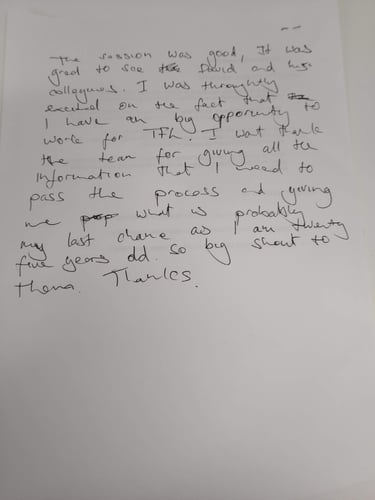 The session was good, It was
great to see David and his
colleagues. I was throughtly
excited on the fact that
I have an big opportunity to
work for TFL. I want thank
the team for giving all the
information that I need to
pass the process and giving
me what is probably
my last chane as I am twenty
five years old. so big shout to
them. Thanks.